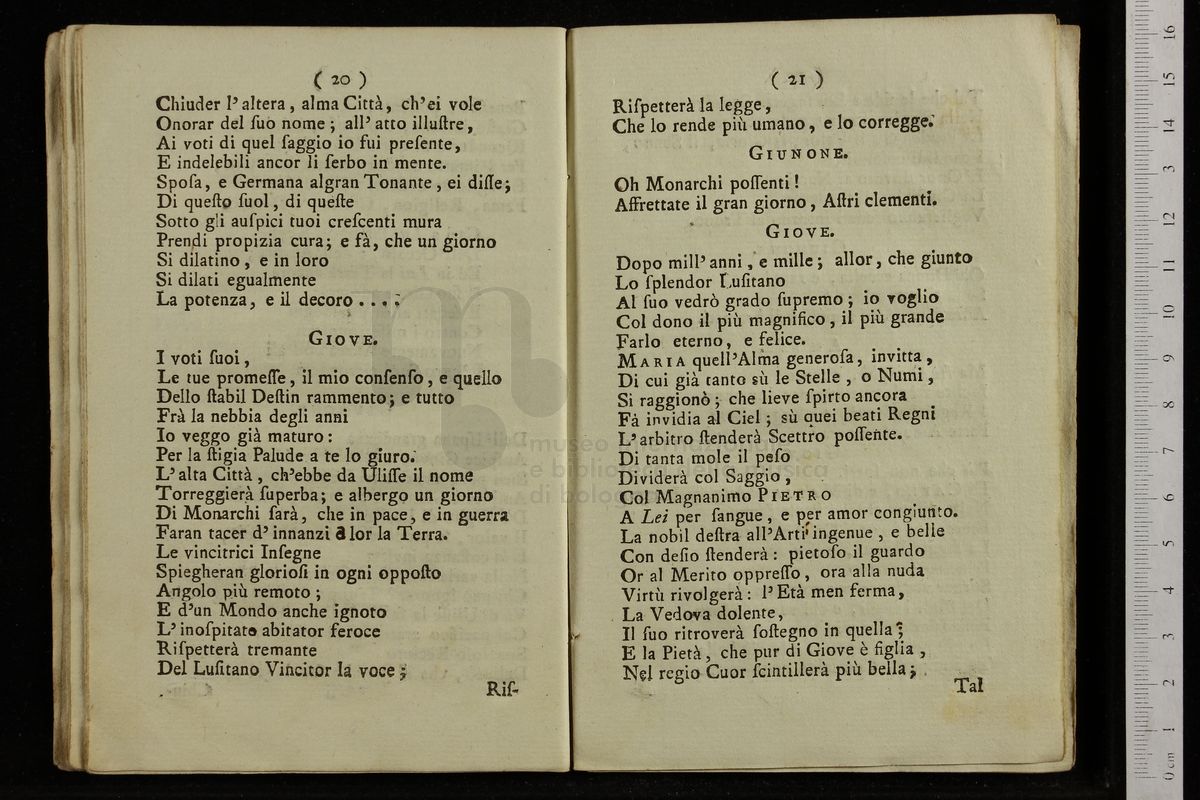 ( 20 )
Chiuder l'altera, alma Città, ch'ei vole
Onorar del ſuo nome; all'atto illuſtre,
Ai voti di quel ſaggio io fui preſente,
E indelebili ancor li ſerbo in mente.
Spoſa, e Germana algran Tonante, ei diſſe;
Di queſto ſuol, di queſte
Sotto gli auſpici tuoi creſcenti mura
Prendi propizia cura; e fà, che un giorno
Si dilatino, e in loro
Si dilati egualmente
La potenza, e il decoro ....
GIOVE.
I voti ſuoi,
Le tue promeſſe, il mio conſenſo, e quello
Dello ſtabil Deſtin rammento; e tutto
Frà la nebbia degli anni
Io veggo già maturo:
Per la ſtigia Palude a te lo giuro.
L'alta Città, ch'ebbe da Uliſſe il nome
Torreggierà ſuperba; e albergo un giorno
Di Monarchi ſarà, che in pace, e in guerra
Faran tacer d'innanzi a lor la Terra.
Le vincitrici Inſegne
Spiegheran glorioſi in ogni oppoſto
Angolo più remoto;
E d'un Mondo anche ignoto
L'inoſpitato abitator feroce
Riſpetterà tremante
Del Luſitano Vincitor la voce;
Riſ-
( 21 )
Riſpetterà la legge,
Che lo rende più umano, e lo corregge.
GIUNONE.
Oh Monarchi poſſenti!
Affrettate il gran giorno, Aſtri clementi.
GIOVE.
Dopo mill'anni, e mille; allor, che giunto
Lo ſplendor Luſitano
Al ſuo vedrò grado ſupremo; io voglio
Col dono il più magnifico, il più grande
Farlo eterno, e felice.
MARIA quell'Alma generoſa, invitta,
Di cui già tanto sù le Stelle, o Numi,
Si raggionò; che lieve ſpirto ancora
Fà invidia al Ciel; sù quei beati Regni
L'arbitro ſtenderà Scettro poſſente.
Di tanta mole il peſo
Dividerà col Saggio,
Col Magnanimo PIETRO
A Lei per ſangue, e per amor congiunto.
La nobil deſtra all'Arti ingenue, e belle
Con deſio ſtenderà: pietoſo il guardo
Or al Merito oppreſſo, ora alla nuda
Virtù rivolgerà: l'Età men ferma,
La Vedova dolente,
Il ſuo ritroverà ſoſtegno in quella;
E la Pietà, che pur di Giove è figlia,
Nel regio Cuor ſcintillerà più bella;
Tal
museo
e biblioteca della musica
di bologna
0 cm 1 2 3 4 5 6 7 8 9 10 11 12 13 14 15 16